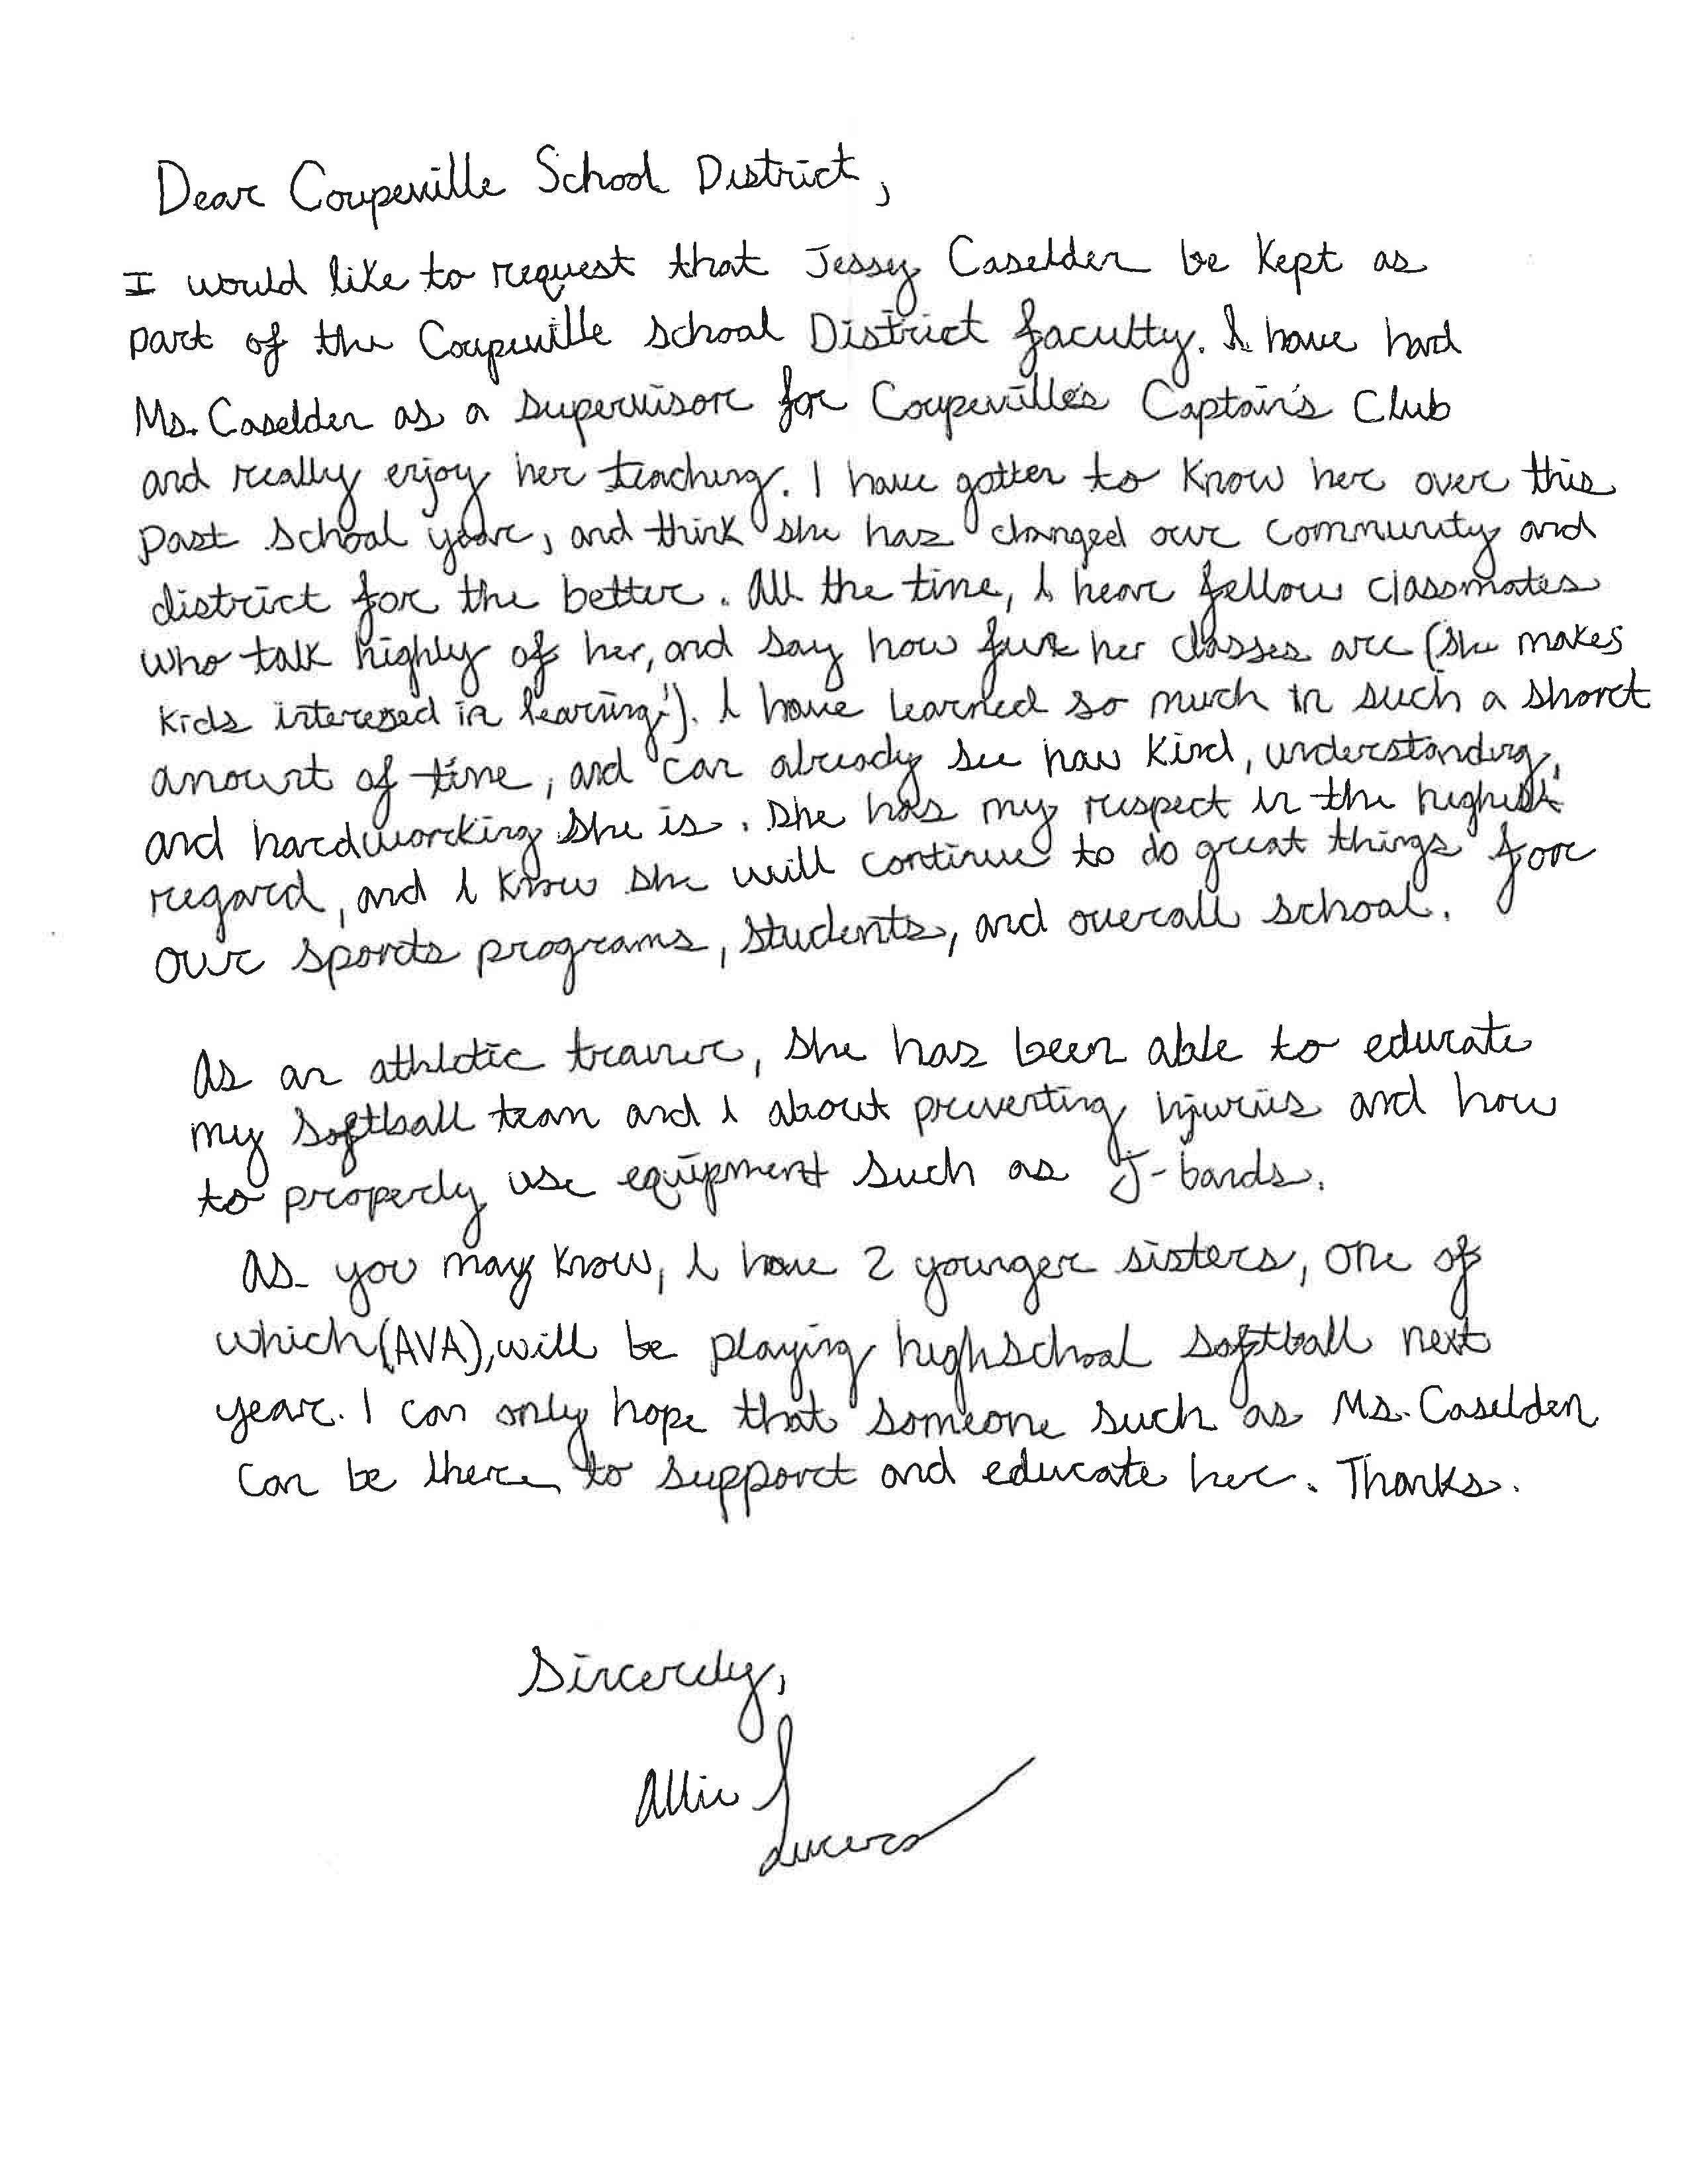 Dear Coupeville School District,
I would like to request that Jessy Caselden be kept as
part of the Coupeville School District faculty. I have had
Ms. Caselden as a supervisor for Coupeville's Captain's Club
and really enjoy her teaching. I have gotten to know her over this
past school year, and think she has changed our community and
district for the better. All the time, I hear fellow classmates
who talk highly of her, and say how fun her classes are (she makes
kids interesed in learning!). I have learned so much in such a short
amount of time, and can already see how kind, understanding,
and hardworking she is. She has my respect in the highest
regard, and I know she will continue to do great things for
our sports programs, students, and overall school.
As an athletic trainer, she has been able to educate
my softball team and I about preventing injuries and how
to properly use equipment such as J-bands.
As you may know, I have 2 younger sisters, one of
which (AVA), will be playing highschool softball next
year. I can only hope that someone such as Ms. Caselden
can be there to support and educate her. Thanks.
Sincerely,
Allie
Lucero